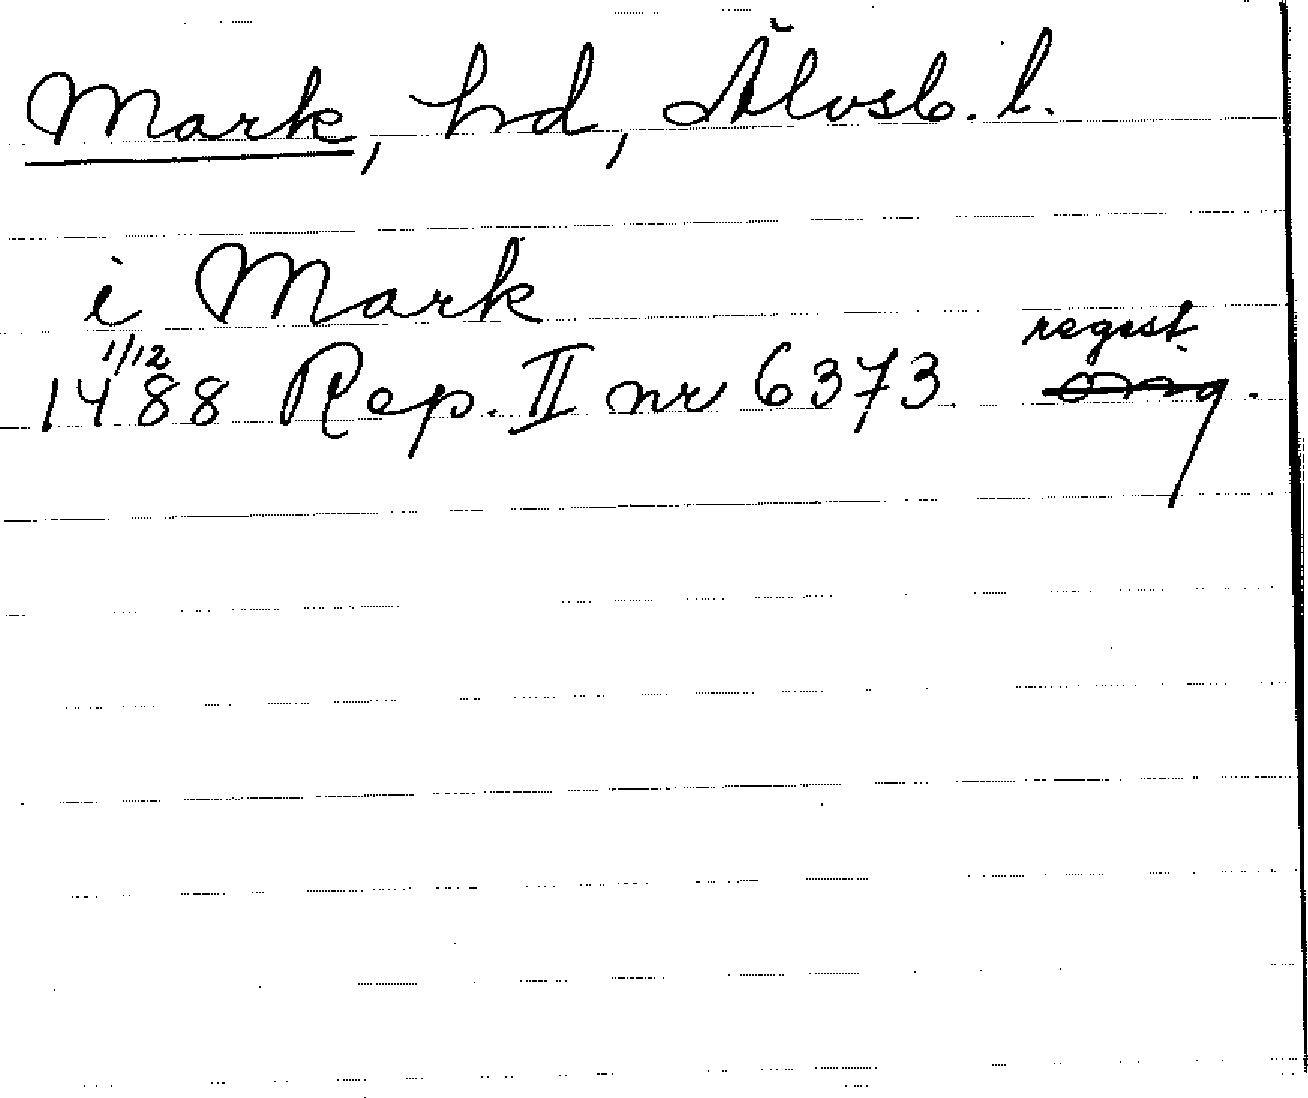 Mark, hd, Älvsb. l.
i Mark
1488 1/12 Rep. II nr 6373 regest.